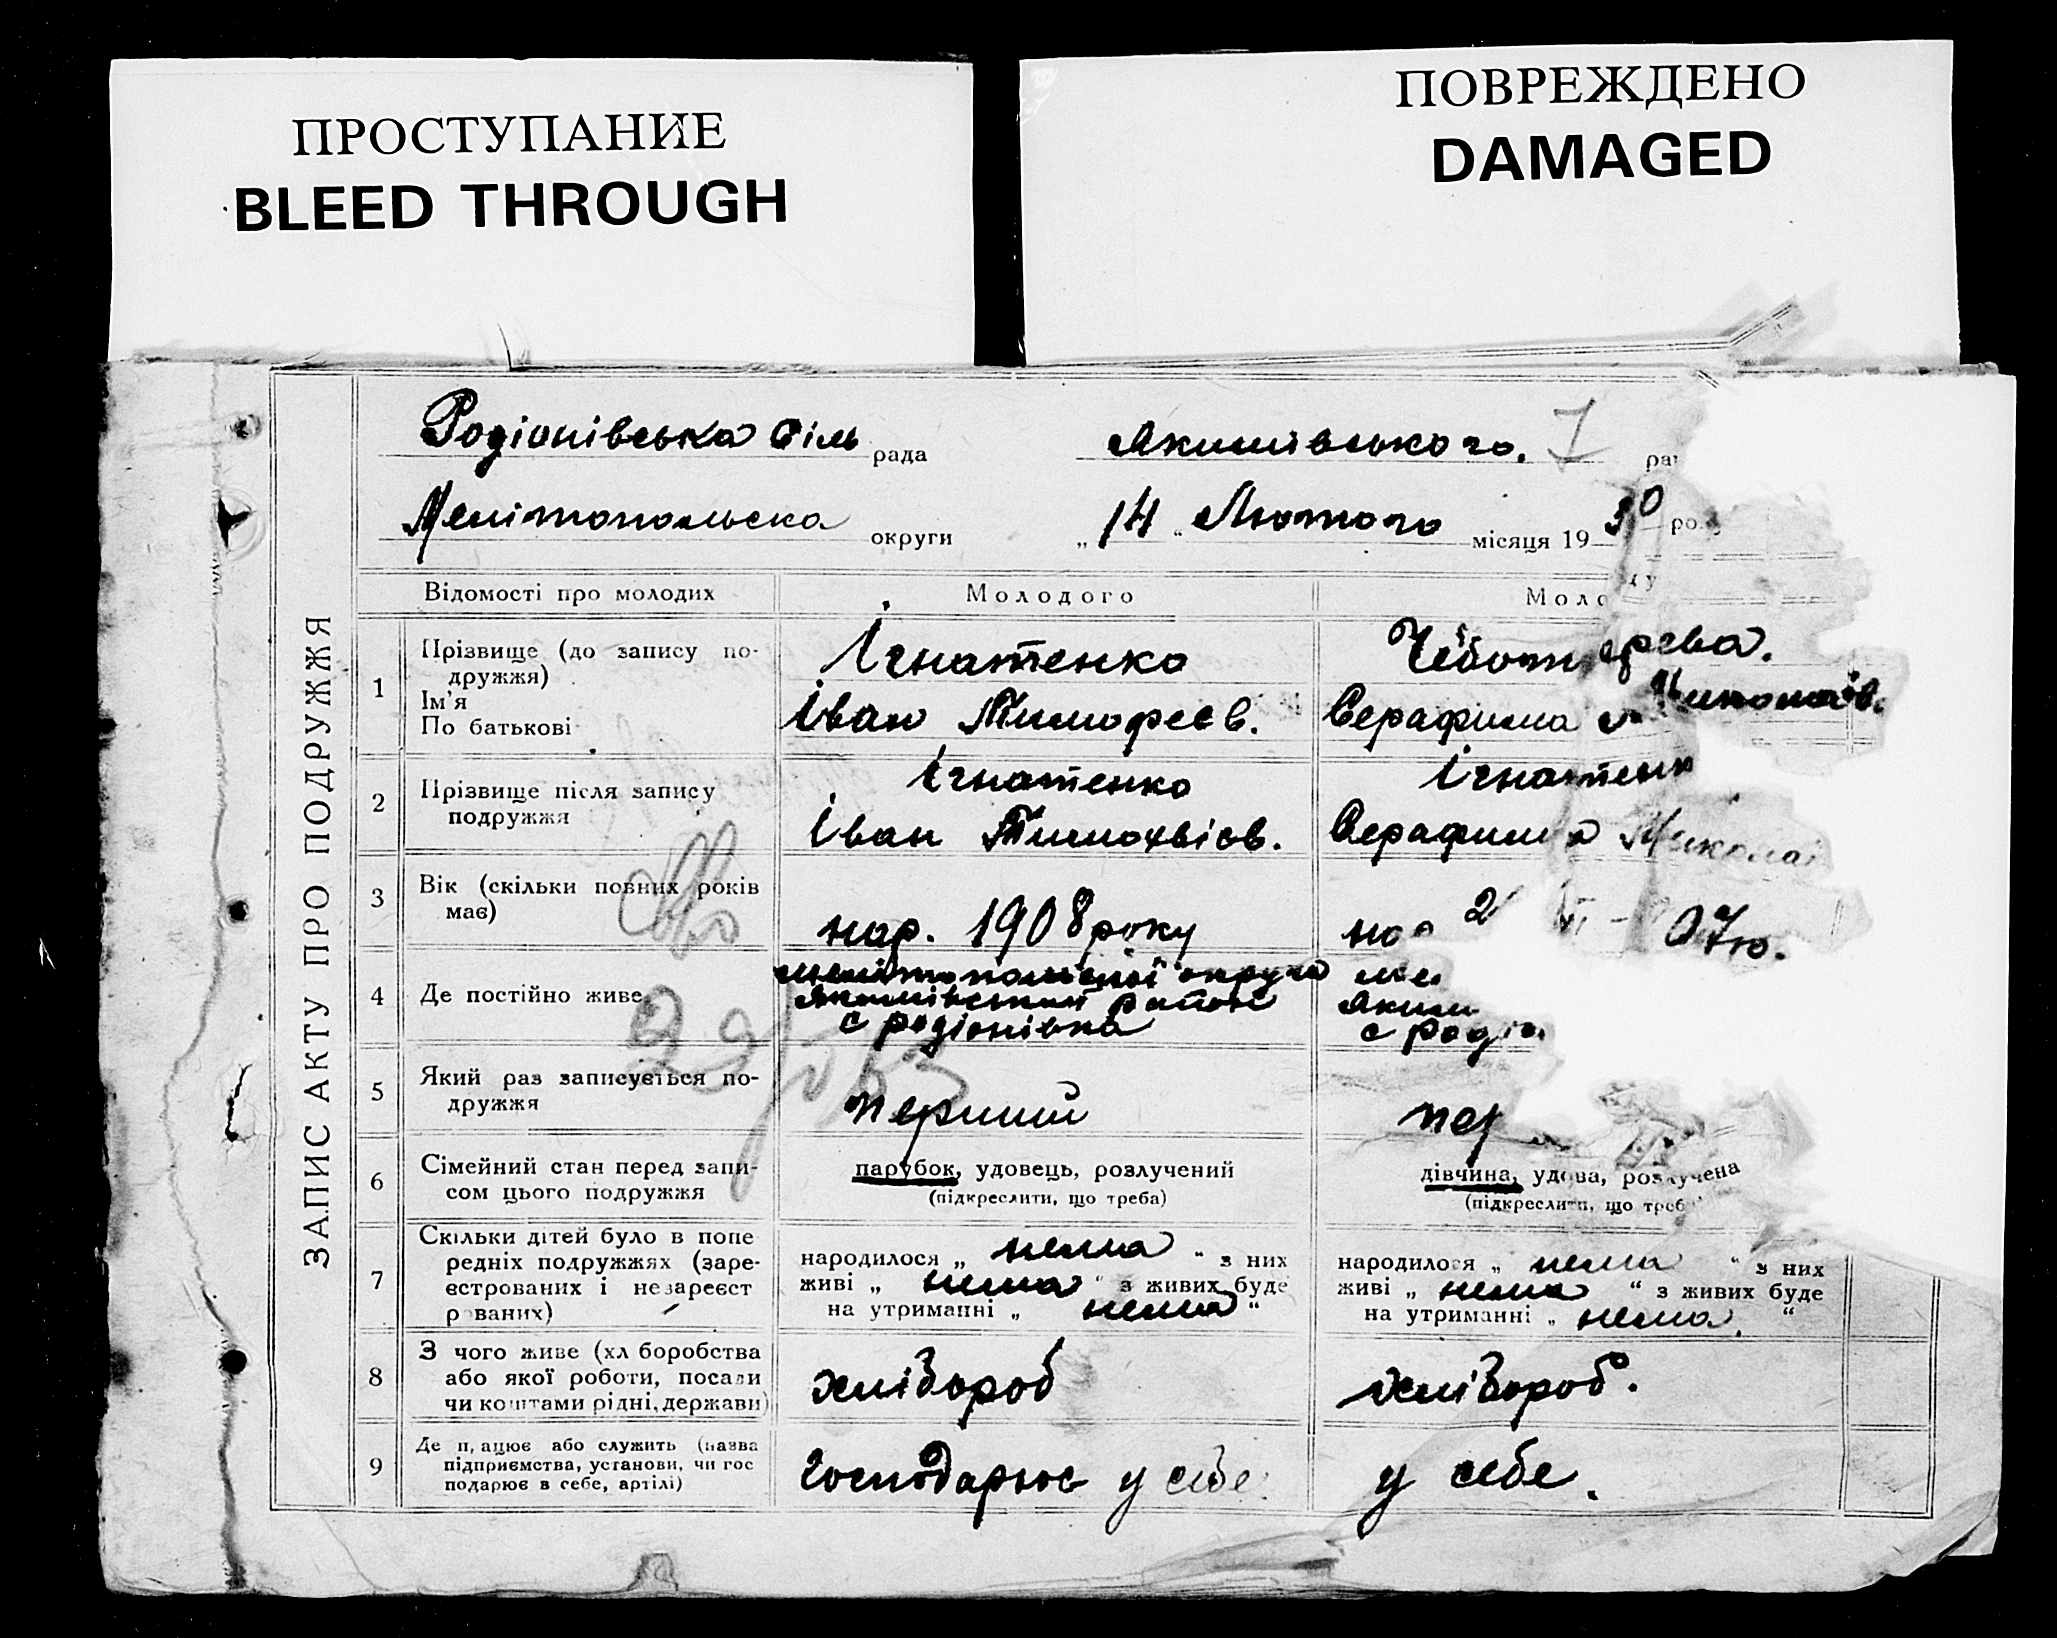 ПРОСТУПАНИЕ
BLEED THROUGH
ПОВРЕЖДЕНО
DAMAGED
ЗАПИС АКТУ ПРО ПОДРУЖЖЯ
Родіонівська сіль рада Якимівського. 7
Мелітопольска округи „14“ Лютого місяця 1930
Відомості про молодих Молодого
1 Прізвище (до запису по-
дружжя)
Ім'я
По батькові
Ігнатенко
Іван Тимофеєв.
Серафима
2 Прізвище після запису
подружжя
Ігнатенко
Іван Тимохвієв.
Серафима
3 Вік (скільки повних років
має)
нар. 1908 року
4 Де постійно живе
Мелітопольскої округи
Якимівський район
с Родіонівка
5 Який раз записується по-
дружжя
перший
6 Сімейний стан перед запи-
сом цього подружжя
парубок, удовець, розлучений
(підкреслити, що треба)
дівчина, удова, розлучена
(підкреслити, що треб
7 Скільки дітей було в попе
редніх подружжях (заре-
єстрованих і незареєст
рованих)
народилося „ нема “ з них
живі „ нема “ з живих буде
на утриманні „ нема “
народилося „ нема “ з них
живі „ нема “ з живих буде
на утриманні „ нема. “
8 З чого живе (хл боробства
або якої роботи, посади
чи коштами рідні, держави)
хлібороб
хлібороб.
9 Де працює або служить (назва
підприємства, установи, чи гос
подарює в себе, артілі)
Господарює у себе
у себе.